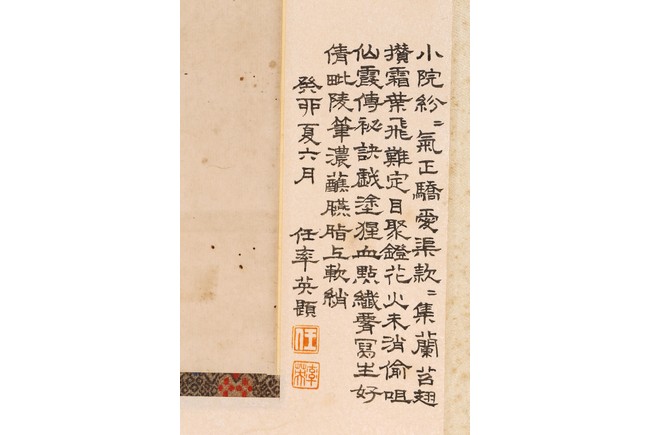 小院紛〻氣正驕愛渠款〻集蘭苕翅
攢霜葉飛難定目聚鐙花火未消偷咀
仙霞傳祕訣戲塗猩血點纖霄寫生好
倩毗陵筆濃蘸臙脂上軟綃
癸卯夏六月 任率英題
任
率英